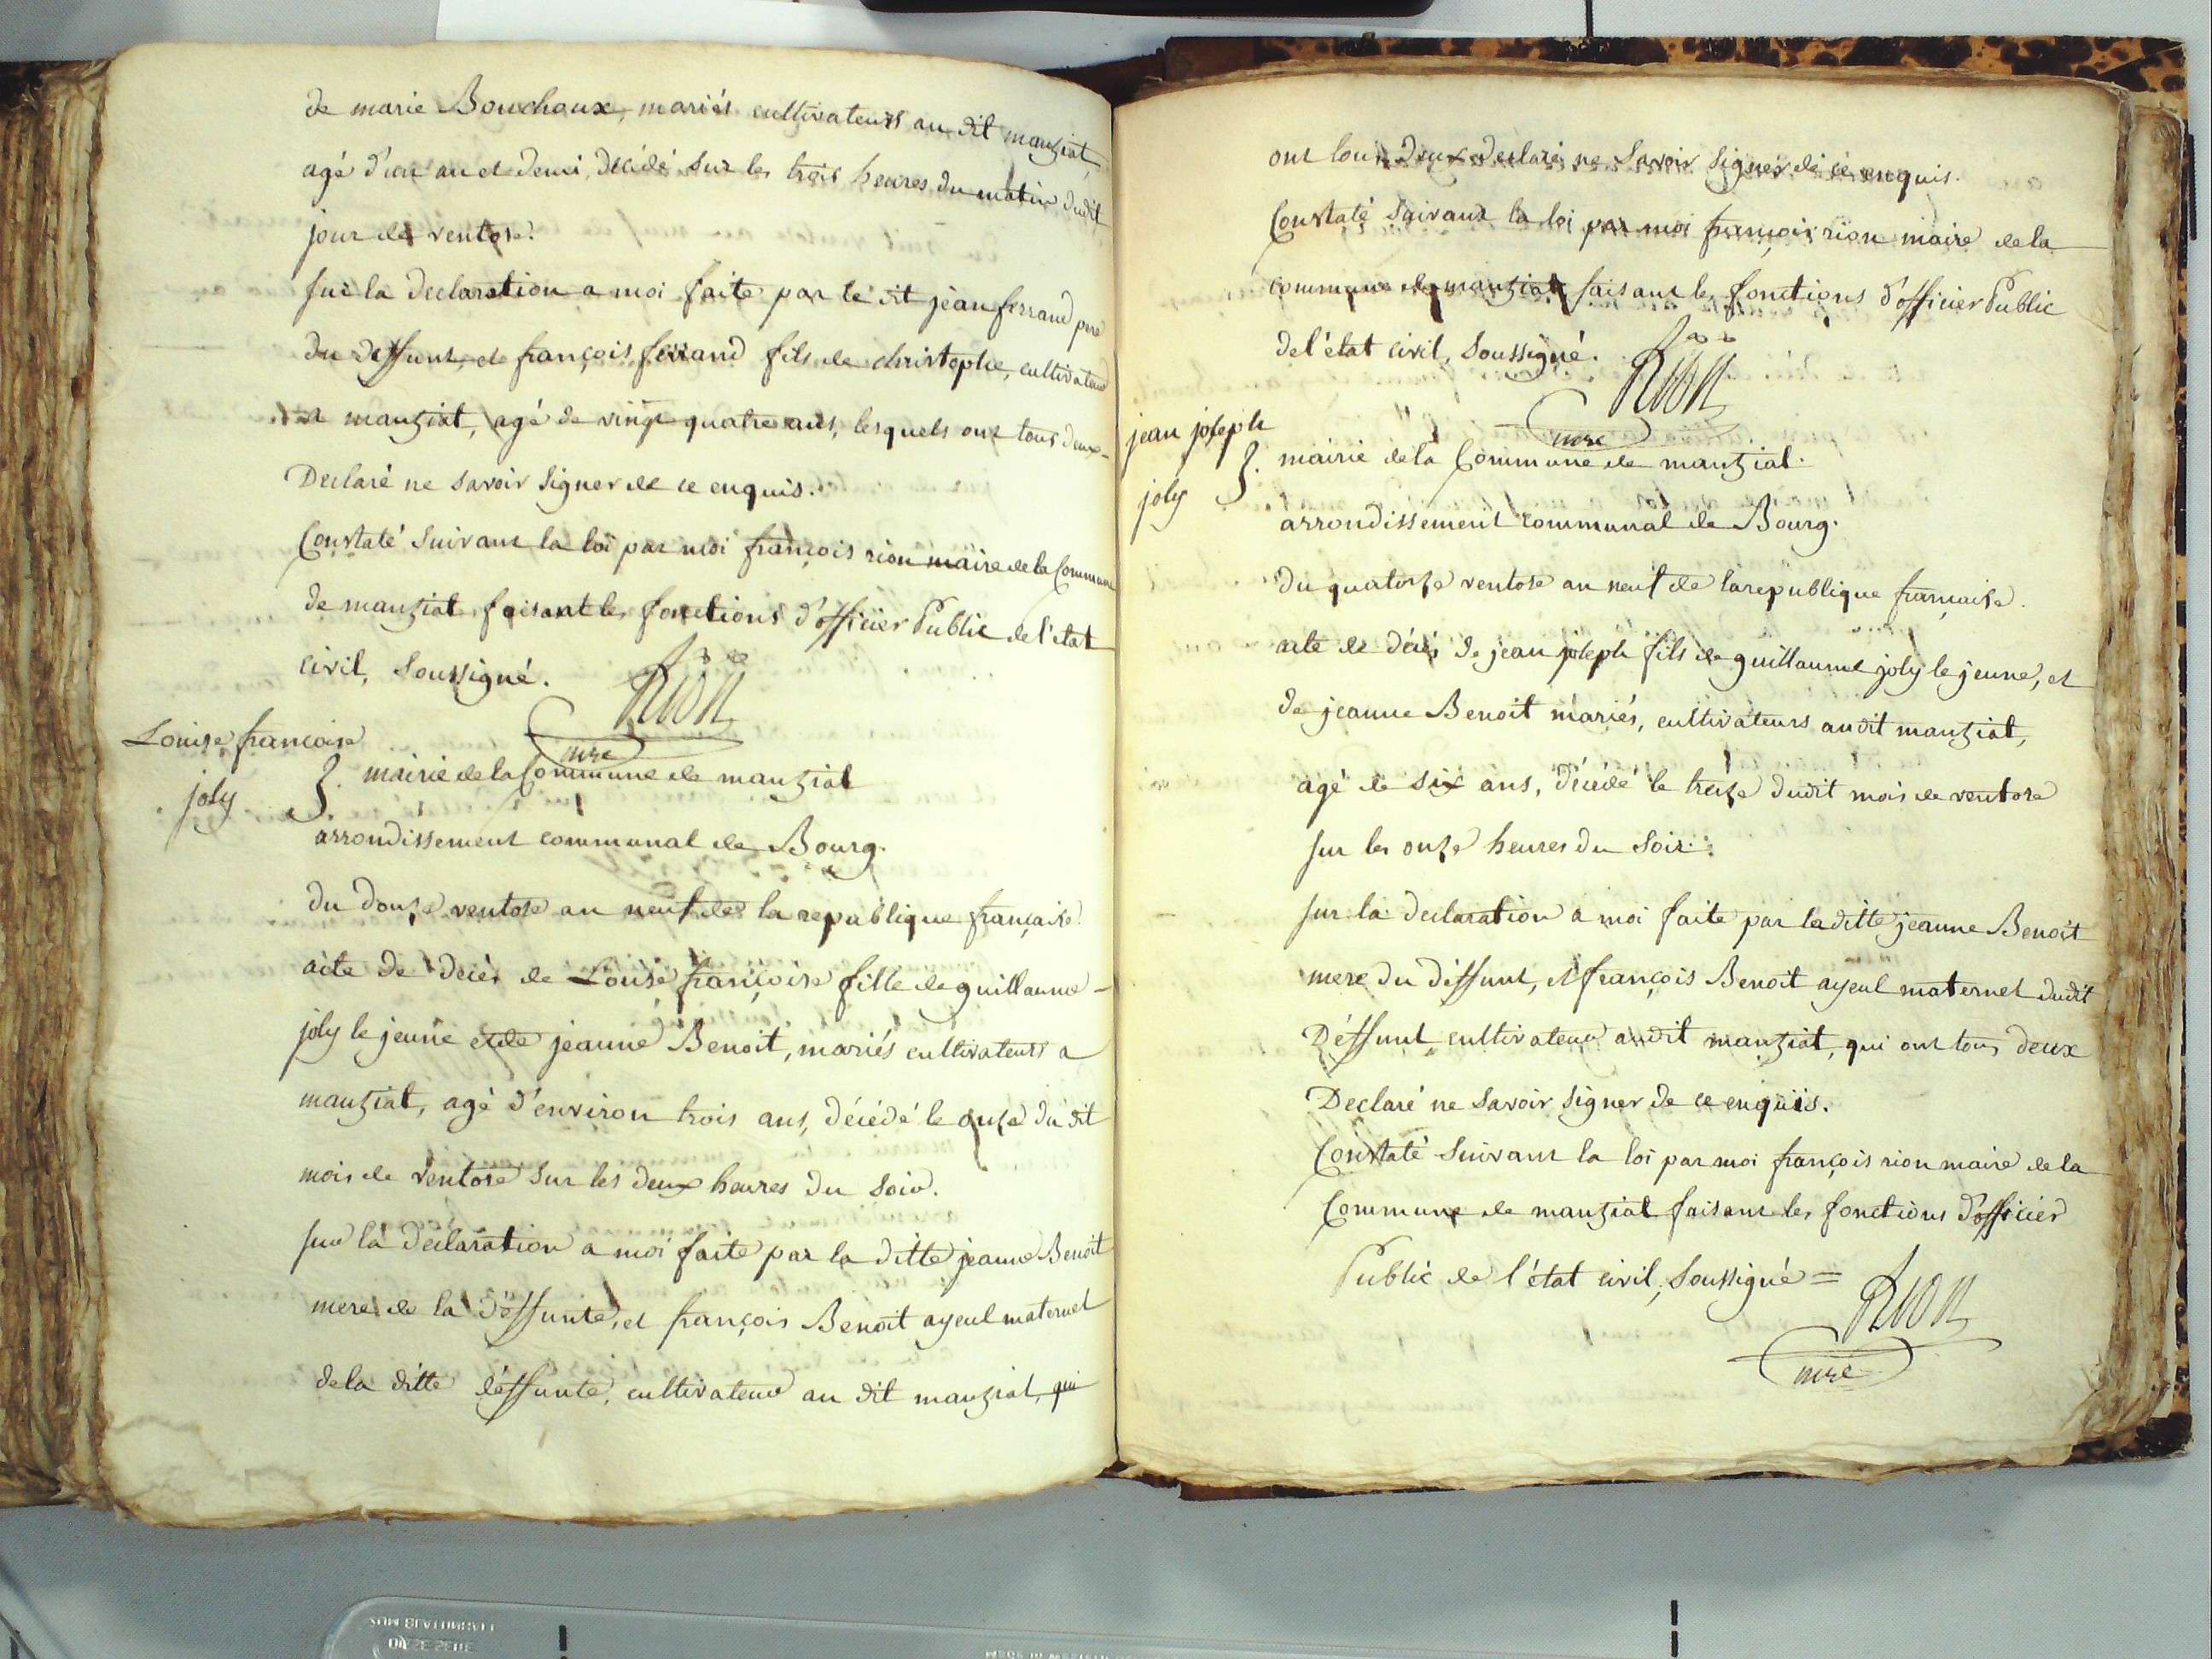 de marie Bouchoux, mariés cultivateurs au dit manziat,
agé d'un an et demi, décédé sur les trois heures du matin dudit
jour de ventose.
sur la declaration a moi faite par le dit jean ferrand pere
du deffunt, et françois ferrand fils de christophe, cultivateur
a manziat, agé de vingt quatre ans, lesquels ont tous deux
Declaré ne savoir signer de ce enquis.
Constaté suivant la loi par moi françois rion maire de la Commune
de manziat faisant les fonctions d'officier Public de l'état
civil, soussigné.
Rion
mre
Louise françoise
joly
mairie de la Commune de manziat
arrondissement communal de Bourg.
du douze ventose an neuf de la republique française.
acte de décès de Louise françoise fille de guillaume
joly le jeune et de jeanne Benoit, mariés cultivateurs a
manziat, agé d'environ trois ans, décédé le onze du dit
mois de ventose sur les deux heures du soir.
sur la declaration a moi faite par la ditte jeanne Benoit
mere de la déffunte, et françois Benoit ayeul maternel
de la ditte déffunte, cultivateur au dit manziat, qui
ont tous deux declaré ne savoir signer de ce enquis.
Constaté suivant la loi par moi françois rion maire de la
commune de manziat faisant les fonctions d'officier Public
de l'état civil, soussigné.
Rion
mre
jean joseph
joly
mairie de la Commune de manziat.
arrondissement communal de Bourg.
du quatorze ventose an neuf de la republique française.
acte de décès de jean joseph fils de guillaume joly le jeune, et
de jeanne Benoit mariés, cultivateurs au dit manziat,
agé de six ans, décédé le treize dudit mois de ventose
sur les onze heures du soir.
sur la declaration a moi faite par la ditte jeanne Benoit
mere du déffunt, et françois Benoit ayeul maternel dudit
Déffunt cultivateur au dit manziat, qui ont tous deux
Declaré ne savoir signer de ce enquis.
Constaté suivant la loi par moi françois rion maire de la
Commune de manziat faisant les fonctions d'officier
Public de l'état civil, soussigné =
Rion
mre